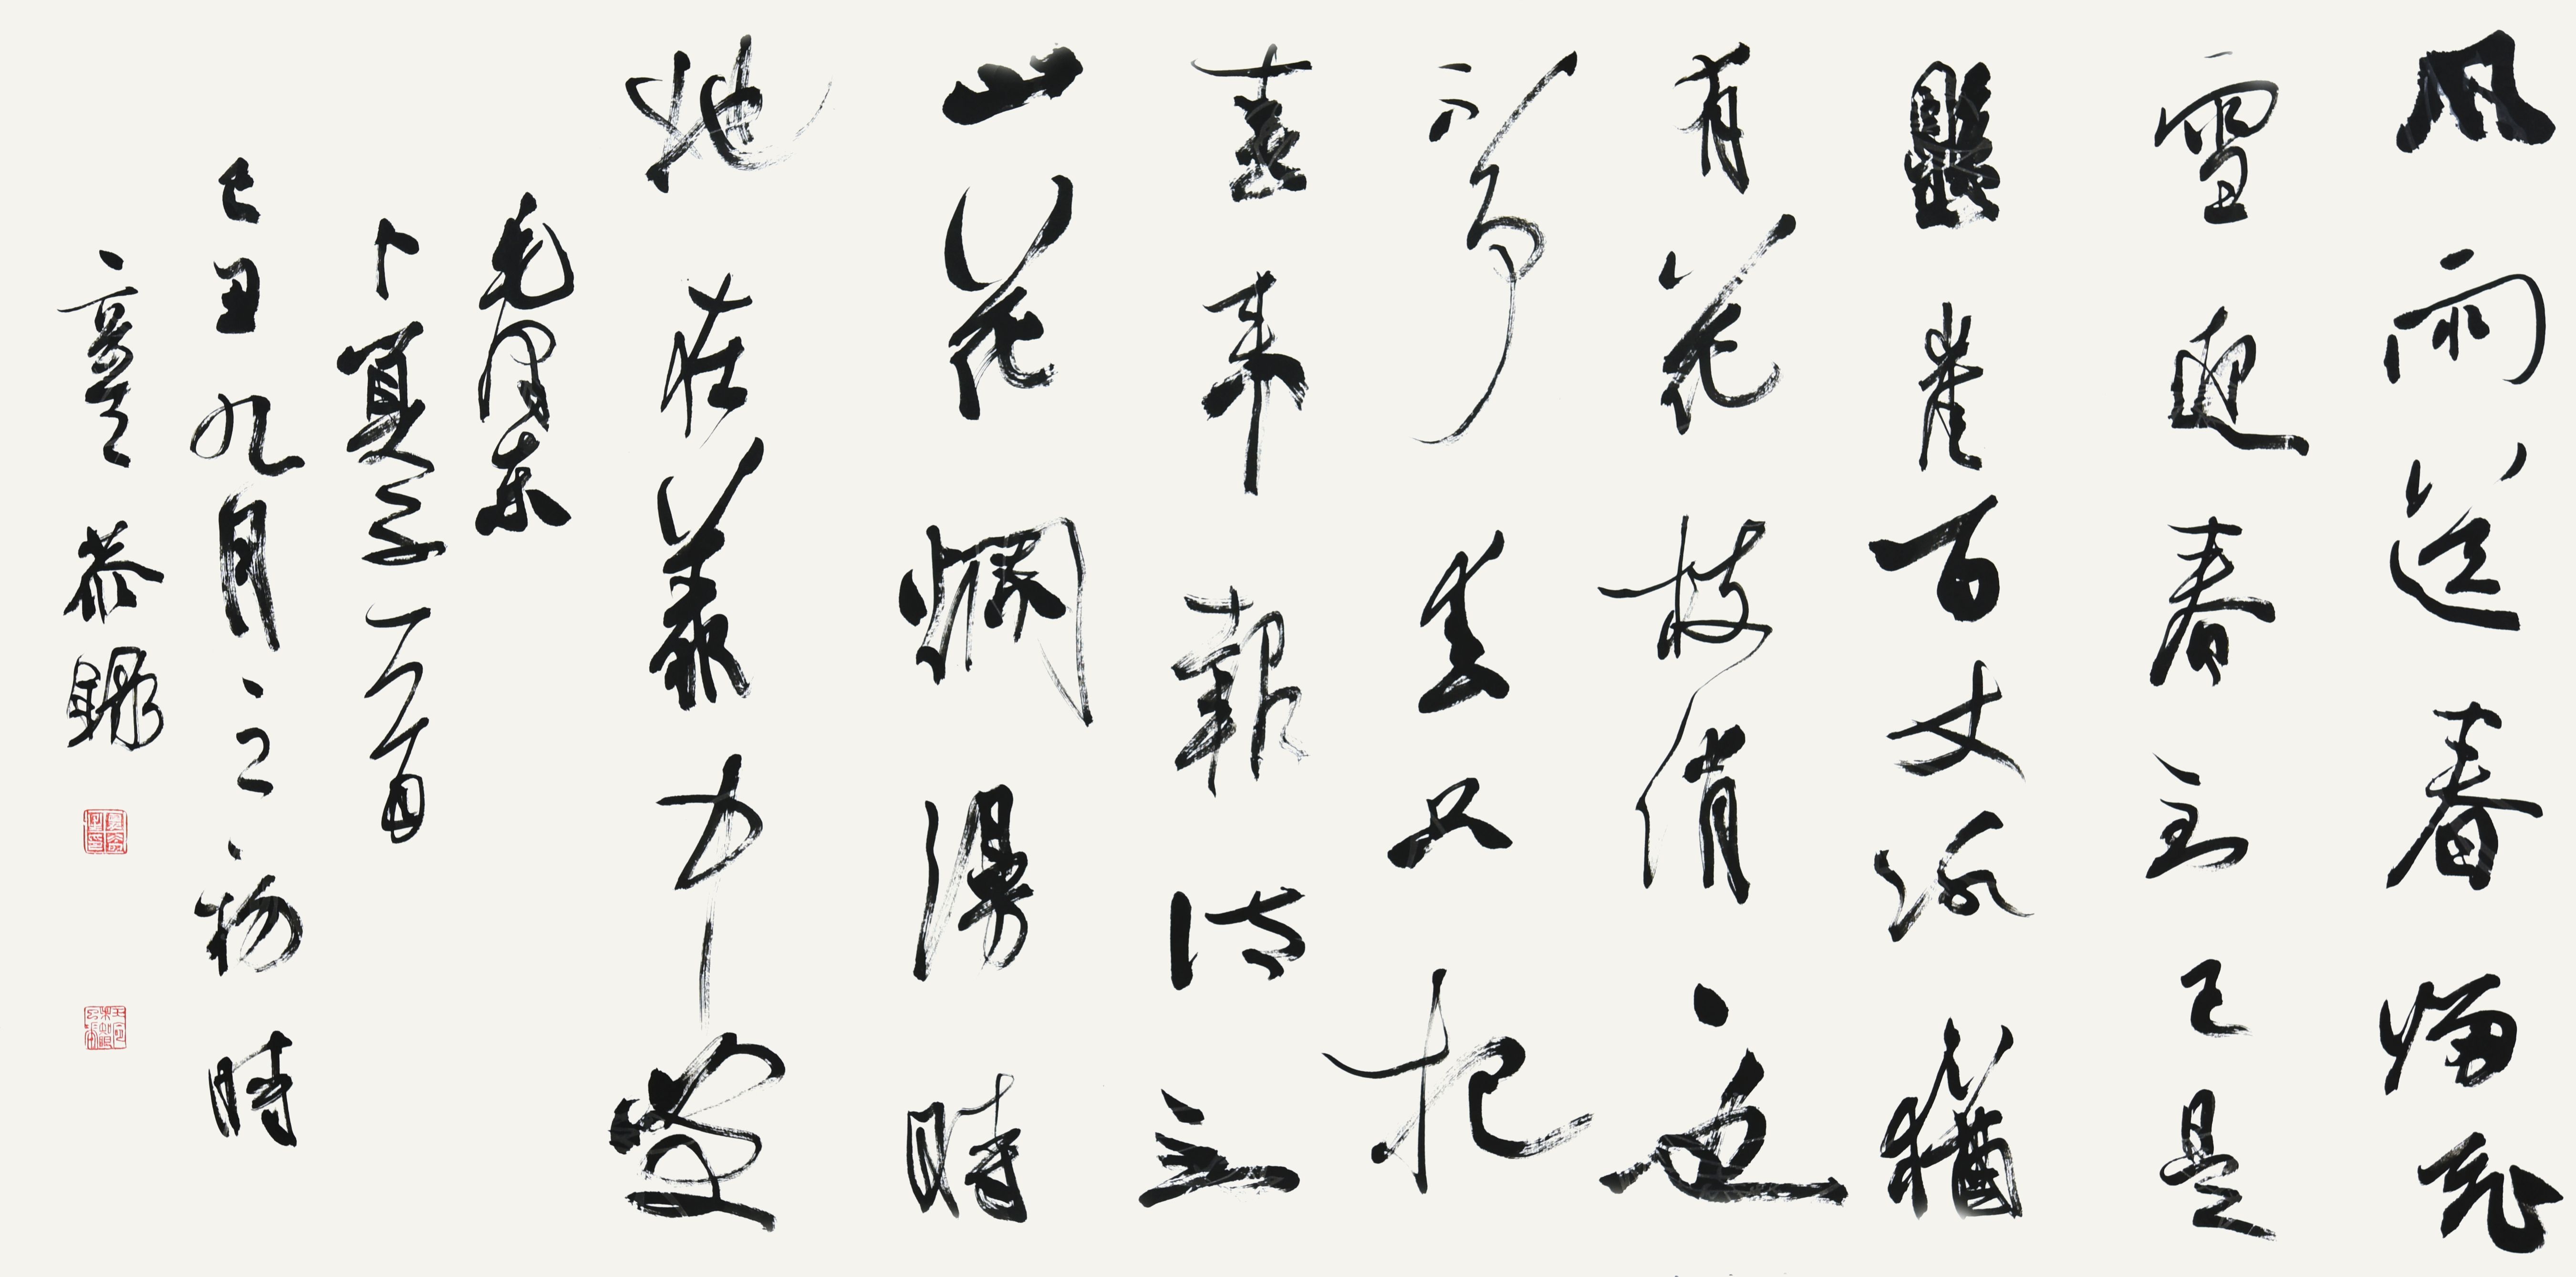 風雨送春歸飛
雪迎春到已是
懸崖百丈冰猶
有花枝俏也
不爭春只把
春来報待到
山花爛漫時
她在叢中笑
毛澤東
卜算子一首
己丑九月之初時